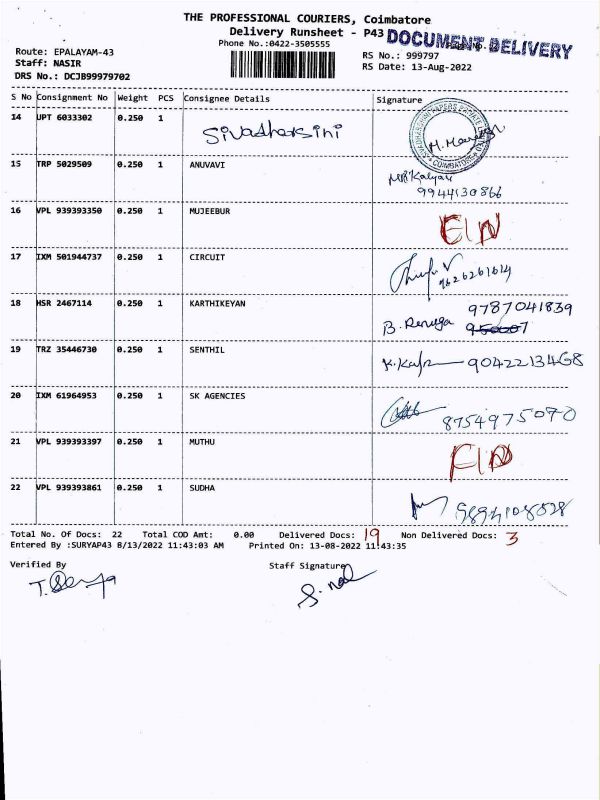 THE PROFESSIONAL COURIERS, Coimbatore
Delivery Runsheet - P43
DOCUMENT DELIVERY
Phone No.:0422-3505555
Route: EPALAYAM-43
RS No.: 999797
Staff: NASIR
RS Date: 13-Aug-2022
DRS No.: DCJB99979702
S No Consignment No Weight PCS Consignee Details Signature
14 UPT 6033302 0.250 1 Sivadharsini
COIMBATORE
15 TRP 5029509 0.250 1 ANUVAVI
9944130866
16 VPL 939393350 0.250 1 MUJEEBUR
17 IXM 501944737 0.250 1 CIRCUIT
9626261614
18 HSR 2467114 0.250 1 KARTHIKEYAN 9787041839
B. Renuga
19 TRZ 35446730 0.250 1 SENTHIL
9042213468
20 IXM 61964953 0.250 1 SK AGENCIES
8754975070
21 VPL 939393397 0.250 1 MUTHU
22 VPL 939393861 0.250 1 SUDHA
Total No. Of Docs: 22 Total COD Amt: 0.00 Delivered Docs: 19 Non Delivered Docs: 3
Entered By :SURYAP43 8/13/2022 11:43:03 AM Printed On: 13-08-2022 11:43:35
Verified By Staff Signature